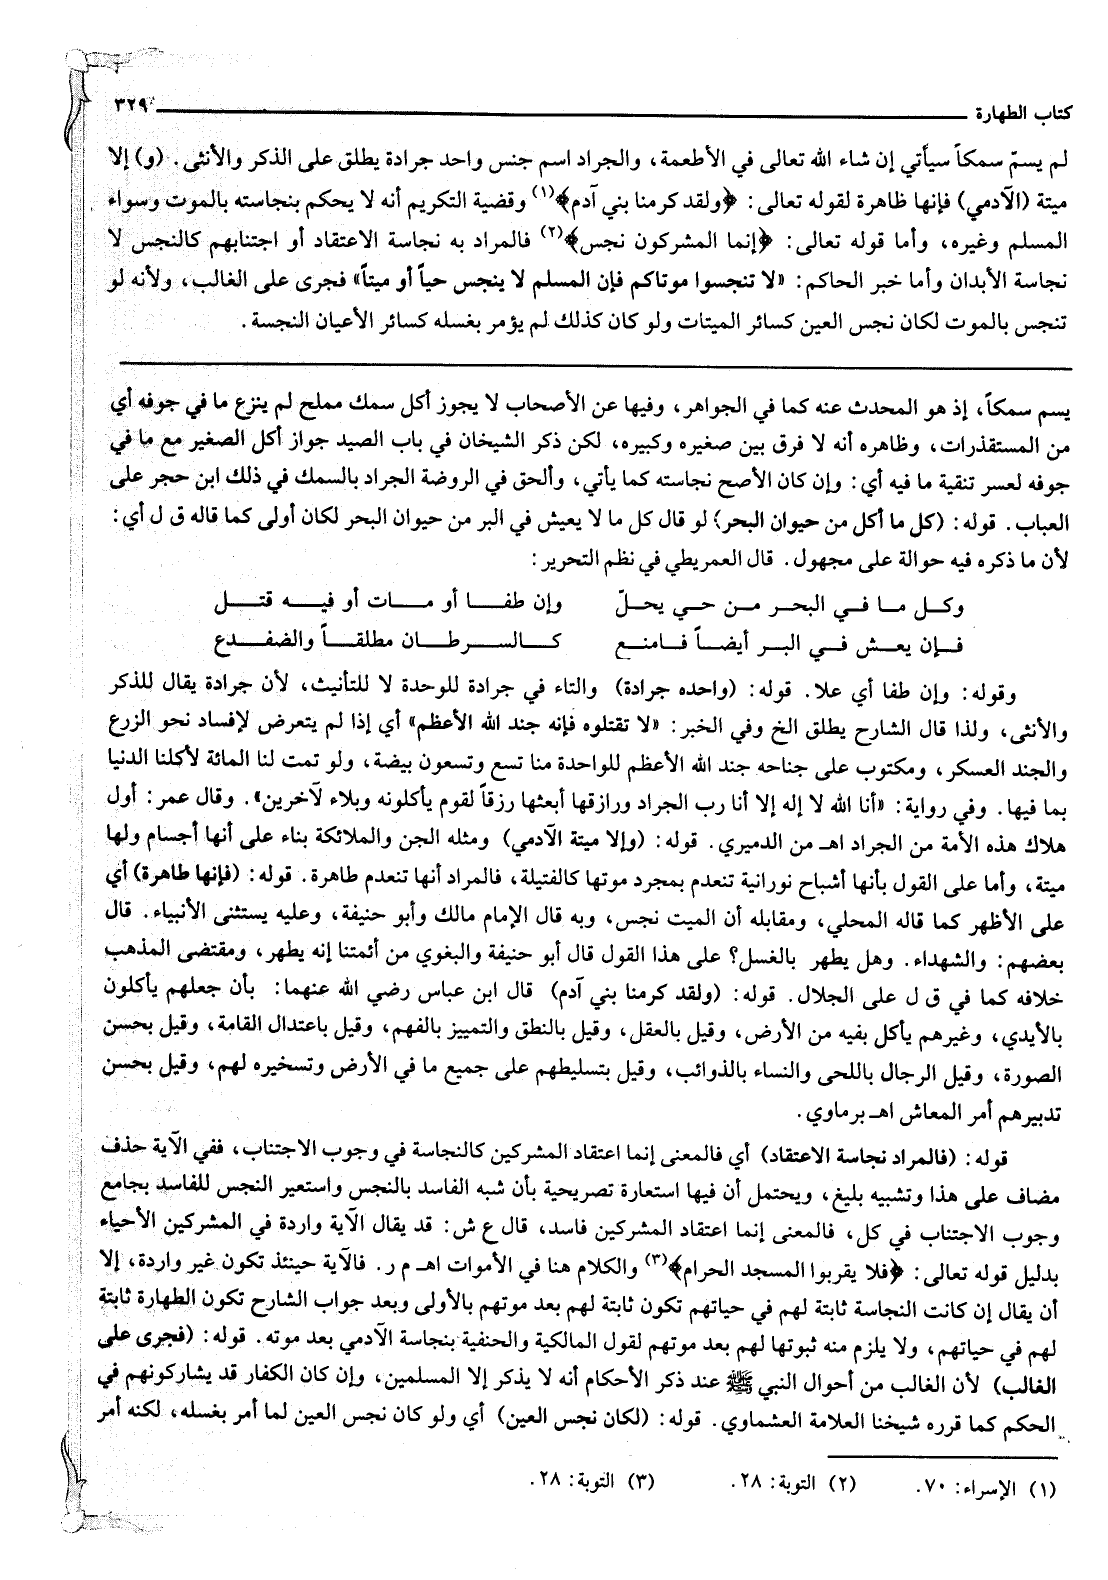 كتاب الطهارة ٣٢٩
لم يسمّ سمكاً سيأتي إن شاء الله تعالى في الأطعمة، والجراد اسم جنس واحد جرادة يطلق على الذكر والأنثى. (و) إلا
ميتة (الآدمي) فإنها ظاهرة لقوله تعالى: ﴿ولقد كرمنا بني آدم﴾(١) وقضية التكريم أنه لا يحكم بنجاسته بالموت وسواء
المسلم وغيره، وأما قوله تعالى: ﴿إنما المشركون نجس﴾(٢) فالمراد به نجاسة الاعتقاد أو اجتنابهم كالنجس لا
نجاسة الأبدان وأما خبر الحاكم: «لا تنجسوا موتاكم فإن المسلم لا ينجس حياً أو ميتاً» فجرى على الغالب، ولأنه لو
تنجس بالموت لكان نجس العين كسائر الميتات ولو كان كذلك لم يؤمر بغسله كسائر الأعيان النجسة.
يسم سمكاً، إذ هو المحدث عنه كما في الجواهر، وفيها عن الأصحاب لا يجوز أكل سمك مملح لم ينزع ما في جوفه أي
من المستقذرات، وظاهره أنه لا فرق بين صغيره وكبيره، لكن ذكر الشيخان في باب الصيد جواز أكل الصغير مع ما في
جوفه لعسر تنقية ما فيه أي: وإن كان الأصح نجاسته كما يأتي، وألحق في الروضة الجراد بالسمك في ذلك ابن حجر على
العباب. قوله: (كل ما أكل من حيوان البحر) لو قال كل ما لا يعيش في البر من حيوان البحر لكان أولى كما قاله ق ل أي:
لأن ما ذكره فيه حوالة على مجهول. قال العمريطي في نظم التحرير:
وكل ما في البحر من حي يحلّ وإن طفا أو مات أو فيه قتل
فإن يعش في البر أيضاً فامنع كالسرطان مطلقاً والضفدع
وقوله: وإن طفا أي علا. قوله: (واحده جرادة) والتاء في جرادة للوحدة لا للتأنيث، لأن جرادة يقال للذكر
والأنثى، ولذا قال الشارح يطلق الخ وفي الخبر: «لا تقتلوه فإنه جند الله الأعظم» أي إذا لم يتعرض لإفساد نحو الزرع
والجند العسكر، ومكتوب على جناحه جند الله الأعظم للواحدة منا تسع وتسعون بيضة، ولو تمت لنا المائة لأكلنا الدنيا
بما فيها. وفي رواية: «أنا الله لا إله إلا أنا رب الجراد ورازقها أبعثها رزقاً لقوم يأكلونه وبلاء لآخرين». وقال عمر: أول
هلاك هذه الأمة من الجراد اهـ من الدميري. قوله: (وإلا ميتة الآدمي) ومثله الجن والملائكة بناء على أنها أجسام ولها
ميتة، وأما على القول بأنها أشباح نورانية تنعدم بمجرد موتها كالفتيلة، فالمراد أنها تنعدم طاهرة. قوله: (فإنها طاهرة) أي
على الأظهر كما قاله المحلي، ومقابله أن الميت نجس، وبه قال الإمام مالك وأبو حنيفة، وعليه يستثنى الأنبياء. قال
بعضهم: والشهداء. وهل يطهر بالغسل؟ على هذا القول قال أبو حنيفة والبغوي من أئمتنا إنه يطهر، ومقتضى المذهب
خلافه كما في ق ل على الجلال. قوله: (ولقد كرمنا بني آدم) قال ابن عباس رضي الله عنهما: بأن جعلهم يأكلون
بالأيدي، وغيرهم يأكل بفيه من الأرض، وقيل بالعقل، وقيل بالنطق والتمييز بالفهم، وقيل باعتدال القامة، وقيل بحسن
الصورة، وقيل الرجال باللحى والنساء بالذوائب، وقيل بتسليطهم على جميع ما في الأرض وتسخيره لهم، وقيل بحسن
تدبيرهم أمر المعاش اهـ برماوي.
قوله: (فالمراد نجاسة الاعتقاد) أي فالمعنى إنما اعتقاد المشركين كالنجاسة في وجوب الاجتناب، ففي الآية حذف
مضاف على هذا وتشبيه بليغ، ويحتمل أن فيها استعارة تصريحية بأن شبه الفاسد بالنجس واستعير النجس للفاسد بجامع
وجوب الاجتناب في كل، فالمعنى إنما اعتقاد المشركين فاسد، قال ع ش: قد يقال الآية واردة في المشركين الأحياء
بدليل قوله تعالى: ﴿فلا يقربوا المسجد الحرام﴾(٣) والكلام هنا في الأموات اهـ م ر. فالآية حينئذ تكون غير واردة، إلا
أن يقال إن كانت النجاسة ثابتة لهم في حياتهم تكون ثابتة لهم بعد موتهم بالأولى وبعد جواب الشارح تكون الطهارة ثابتة
لهم في حياتهم، ولا يلزم منه ثبوتها لهم بعد موتهم لقول المالكية والحنفية بنجاسة الآدمي بعد موته. قوله: (فجرى على
الغالب) لأن الغالب من أحوال النبي ﷺ عند ذكر الأحكام أنه لا يذكر إلا المسلمين، وإن كان الكفار قد يشاركونهم في
الحكم كما قرره شيخنا العلامة العشماوي. قوله: (لكان نجس العين) أي ولو كان نجس العين لما أمر بغسله، لكنه أمر
(١) الإسراء: ٧٠. (٢) التوبة: ٢٨. (٣) التوبة: ٢٨.